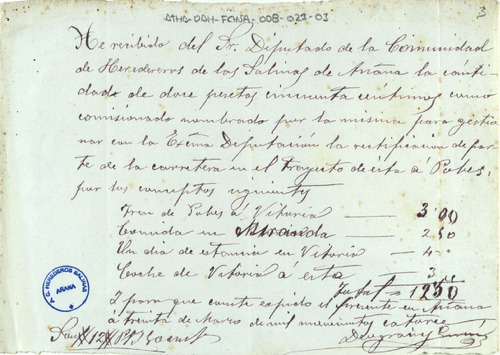 ATHA-DAH-FCHSA-008-023-03
3
He recibido del Sr. Diputado de la Comunidad
de Herederos de las Salinas de Añana la canti
dad de doce pesetas cincuenta centimos como
comisionado nombrado por la misma para gestio
nar con la Exma Diputación la rectificacion de par
te de la carretera en el trayecto de esta á Pobes,
por los conceptos siguientes
Tren de Pobes á Vitoria — 3'00
Comida en Miranda — 2 50
Un dia de estancia en Vitoria — 4 "
Coche de Vitoria a esta — 3 "
Total = 12 50
Y para que conste expido el presente en Añana
á treinta de Marzo de mil novecientos catorce
C. HEREDEROS SALINAS
AÑANA